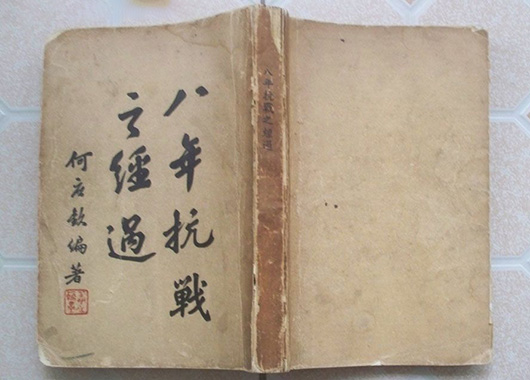 八年抗戰
之經過
何應欽編著
八年抗戰之經過